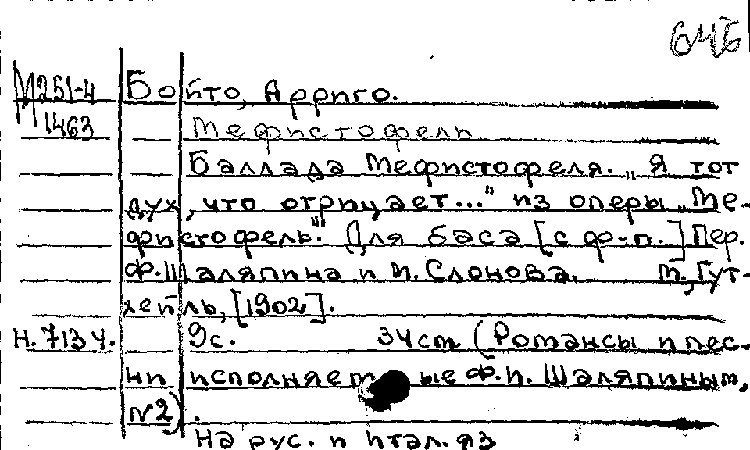 646
М251-4 Бойто, Арриго.
1463 Мефистофель
Баллада Мефистофеля. „Я тот
дух, что отрицает..." из оперы „Ме-
фистофель". Для баса [с ф-п.] Пер.
Ф. Шаляпина и М. Слонова. М., Гут-
хейль, [1902].
Н. 713 ч. 9с. 34см (Романсы и пес-
ни исполняемые Ф. И. Шаляпиным,
№2).
На рус. и итал. яз